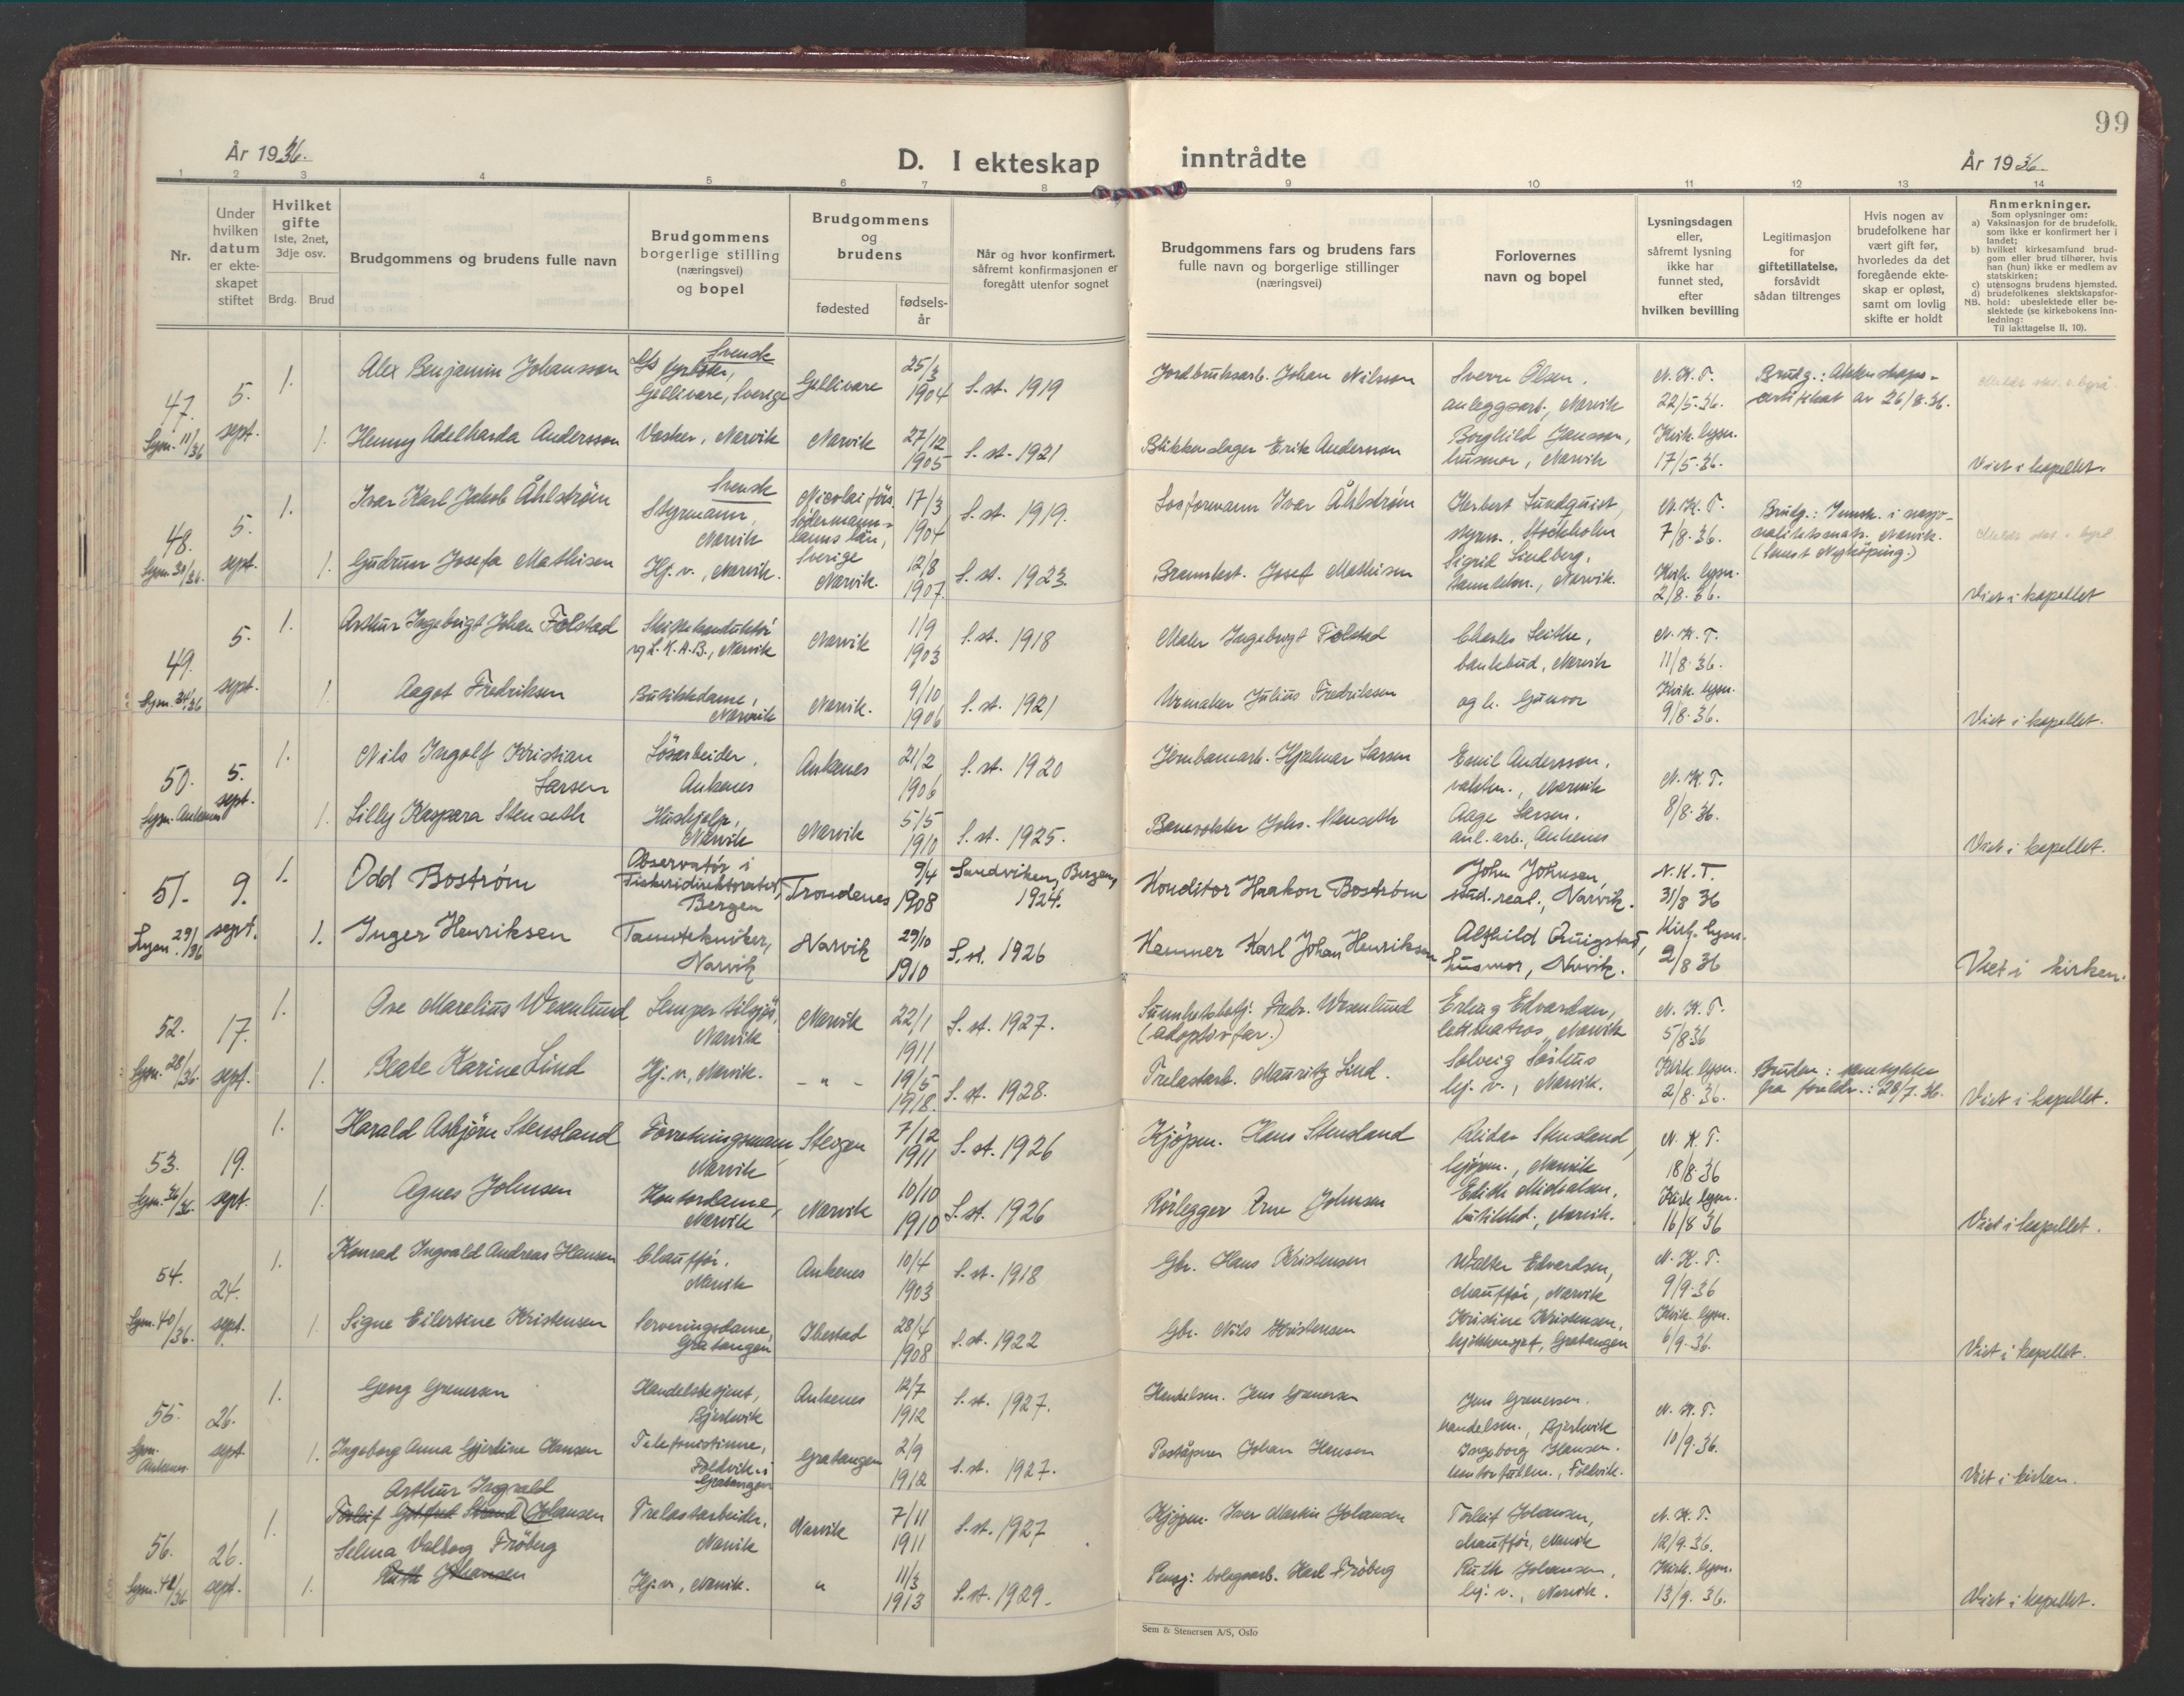 99
År 1936.
D. I ekteskap inntrådte
År 1936
1 2 3 4 5 6 7 8 9 10 11 12 13 14
Nr.
Under hvilken datum er ekteskapet stiftet
Hvilket gifte
1ste, 2net, 3dje osv.
Brdg. Brud
Brudgommens og brudens fulle navn
Brudgommens borgerlige stilling (næringsvei) og bopel
Brudgommens og brudens
fødested
fødselsår
Når og hvor konfirmert, såfremt konfirmasjonen er foregått utenfor sognet
Brudgommens fars og brudens fars fulle navn og borgerlige stillinger (næringsvei)
Forlovernes navn og bopel
Lysningsdagen eller, såfremt lysning ikke har funnet sted, efter hvilken bevilling
Legitimasjon for giftetillatelse, forsåvidt sådan tiltrenges
Hvis nogen av brudefolkene har vært gift før, hvorledes da det foregående ekteskap er opløst, samt om lovlig skifte er holdt
Anmerkninger.
Som oplysninger om:
a) Vaksinasjon for de brudefolk, som ikke er konfirmert her i landet;
b) hvilket kirkesamfund brudgom eller brud tilhører, hvis han (hun) ikke er medlem av statskirken;
c) utensogns brudens hjemsted.
d) brudefolkenes slektskapsforhold: ubeslektede eller beslektede (se kirkebokens innledning:
NB.
Til iakttagelse II, 10).
47. Lysn. 11/36 5. sept.
1. Alex Benjamin Johansson Svensk Gellivare, Sverige Gellivare 25/3 1904 S. st. 1919 Jordbruksarb. Johan Nilsson Sverre Olsen, anleggsarb., Narvik N. K. T. 22/5-36. Brudg.: av 26/8-36.
1. Henny Adelharda Andersson Vasker, Narvik Narvik 27/12 1905 S. st. 1921 Blikkenslager Erik Andersson Borghild Jansson, husmor, Narvik Kirk. lysn. 17/5-36. Viet i kapellet.
48. Lysn. 30/36 5. sept.
1. Ivar Karl Jakob Åhlström Svensk Styrmann, Narvik Nicolai förs. Södermannlanns län, Sverige 17/3 1904 S. st. 1919. Ivar Åhlström Herbert Lundquist, styrm., Stockholm N. K. T. 7/8-36. Brudg.: i Narvik.
1. Gudrun Josefa Mathisen Hj. v., Narvik. Narvik. 12/8 1907. S. st. 1923. Brannbest. Josef Mathisen Sigrid Lindberg, Narvik. Kirk. lysn. 2/8-36. Viet i kapellet
49. Lysn. 34/36 5. sept.
1. Arthur Ingebrigt Johan Folstad Skiftekonduktør v/ L.K.A.B., Narvik Narvik 1/9 1903 S. st. 1918 Maler Ingebrigt Folstad Charles Seithe, bankbud, Narvik N. K. T. 11/8-36.
1. Aagot Fredriksen Butikkdame, Narvik Narvik. 9/10 1906 S. st. 1921 Urmaker Julius Fredriksen og h. Gunvor Kirk. lysn. 9/8-36. Viet i kapellet.
50. Lysn. Ankenes 5. sept.
1. Nils Ingolf Kristian Larsen Løsarbeider, Ankenes Ankenes 21/2 1906 S. st. 1920 Jernbanearb. Hjalmar Larsen Emil Andersson, vaktm., Narvik N. K. T. 8/8-36.
1. Lilly Kaspara Stenseth Hushjelp, Narvik Narvik 5/5 1910 S. st. 1925. Banevokter Johs. Stenseth Aage Larsen, anl. arb., Ankenes Viet i kapellet.
51. Lysn. 29/36 9. sept.
1. Odd Bostrøm Observatør i Fiskeridirektoratet, Bergen Trondenes 9/4 1908 Sandviken, Bergen, 1924. Konditor Haakon Bostrøm John Johnsen, stud. real., Narvik. N. K. T. 31/8 36
1. Inger Henriksen Tanntekniker, Narvik Narvik 29/10 1910 S. st. 1926 Kemner Karl Johan Henriksen Alfhild Quigstad, husmor, Narvik. Kirk. lysn. 2/8 36 Viet i kirken.
52. Lysn. 28/36. 17. sept.
1. Ove Marelius Wesenlund Lemper tilsjøs, Narvik Narvik 22/1 1911 S. st. 1927. Sunnhetsbetj. Fredr. Wesenlund (adoptivfar.) Erling Edvardsen, lettmatros, Narvik N. K. T. 5/8 36
1. Beate Karine Lind Hj. v., Narvik. - " - 19/5 1918. S. st. 1928. Trelastarb. Mauritz Lind. Solveig hj. v., Narvik. Kirk. lysn. 2/8-36. Bruden: samtykke fra foreldr.: 28/7-36. Viet i kapellet.
53. Lysn. 36/36. 19. sept.
1. Harald Asbjørn Stensland Forretningsmann, Narvik Steigen 7/12 1911 S. st. 1926 Kjøpm. Hans Stensland Reidar Stensland, kjøpm., Narvik N. K. T. 18/8-36
1. Agnes Johnsen Kontordame, Narvik Narvik 10/10 1910 S. st. 1926 Rørlegger Arne Johnsen Edith Mikalsen, butikkd., Narvik. Kirk. lysn. 16/8 36 Viet i kapellet.
54. Lysn. 40/36. 24. sept.
1. Konrad Ingvald Andreas Hansen Chauffør, Narvik Ankenes 10/4 1903 S. st. 1918 Gbr. Hans Kristensen Walter Edvardsen, chauffør, Narvik N. K. T. 9/9-36
1. Signe Eilertine Kristensen Serveringsdame, Gratangen Ibestad 28/4 1908 S. st. 1922 Gbr. Nils Kristensen Kristine Kristensen, Gratangen Kirk. lysn. 6/9-36. Viet i kapellet.
55. Lysn. Ankenes. 26. sept
1. Georg Grenersen Handelsbetjent, Bjerkvik Ankenes 12/7 1912 S. st. 1927. Handelsm. Jens Grenersen Jens Grenersen, handelsm., Bjerkvik N. K. T. 10/9-36.
1. Ingeborg Anna Gjertine Hansen Telefonistinne, Foldvik i Gratangen Gratangen 2/9 1912 S. st. 1927. Poståpner Johan Hansen Ingeborg Hansen, Foldvik. Viet i kirken.
56. Lysn. 42/36 26. sept.
1. Arthur Ingvald Torleif Gotfred Strand Johansen Trelastarbeider, Narvik Narvik 7/11 1911 S. st. 1927 Kjøpm. Iver Martin Johansen Torleif Johansen, chauffør, Narvik N. K. T. 12/9-36.
1. Selma Valborg Fröberg Ruth Johansen Hj. v., Narvik. " 11/3 1913 S. st. 1929. Pensj. bolagsarb. Karl Fröberg Ruth Johansen, hj. v., Narvik. Kirk. lysn. 13/9-36. Viet i kapellet.
Sem & Stenersen A/S, Oslo